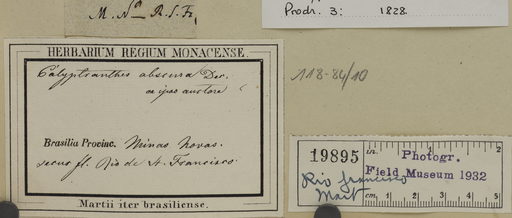 M. Nᵃ R. S. Fr.
Prodr. 3: 1828.
HERBARIUM REGIUM MONACENSE.
Calyptranthes obscura Dec.
ex ipso auctore
Brasilia Provinc. Minas Novas.
secus fl. Rio de S. Francisco.
Martii iter brasiliense.
118-84/10
19895
in. 1 2
Photogr.
Field Museum 1932
Rio francisco
Mart
cm. 1 2 3 4 5